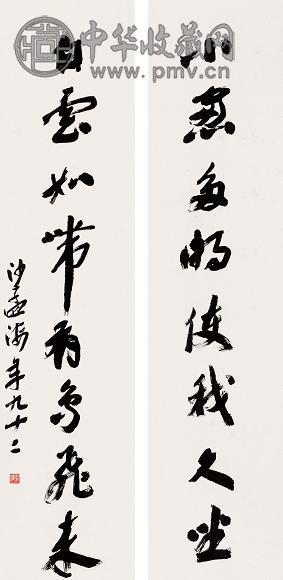 中华收藏网
www.pmv.cn
小窗多明使我久坐
白云如带有鸟飞来
沙孟海年九十二